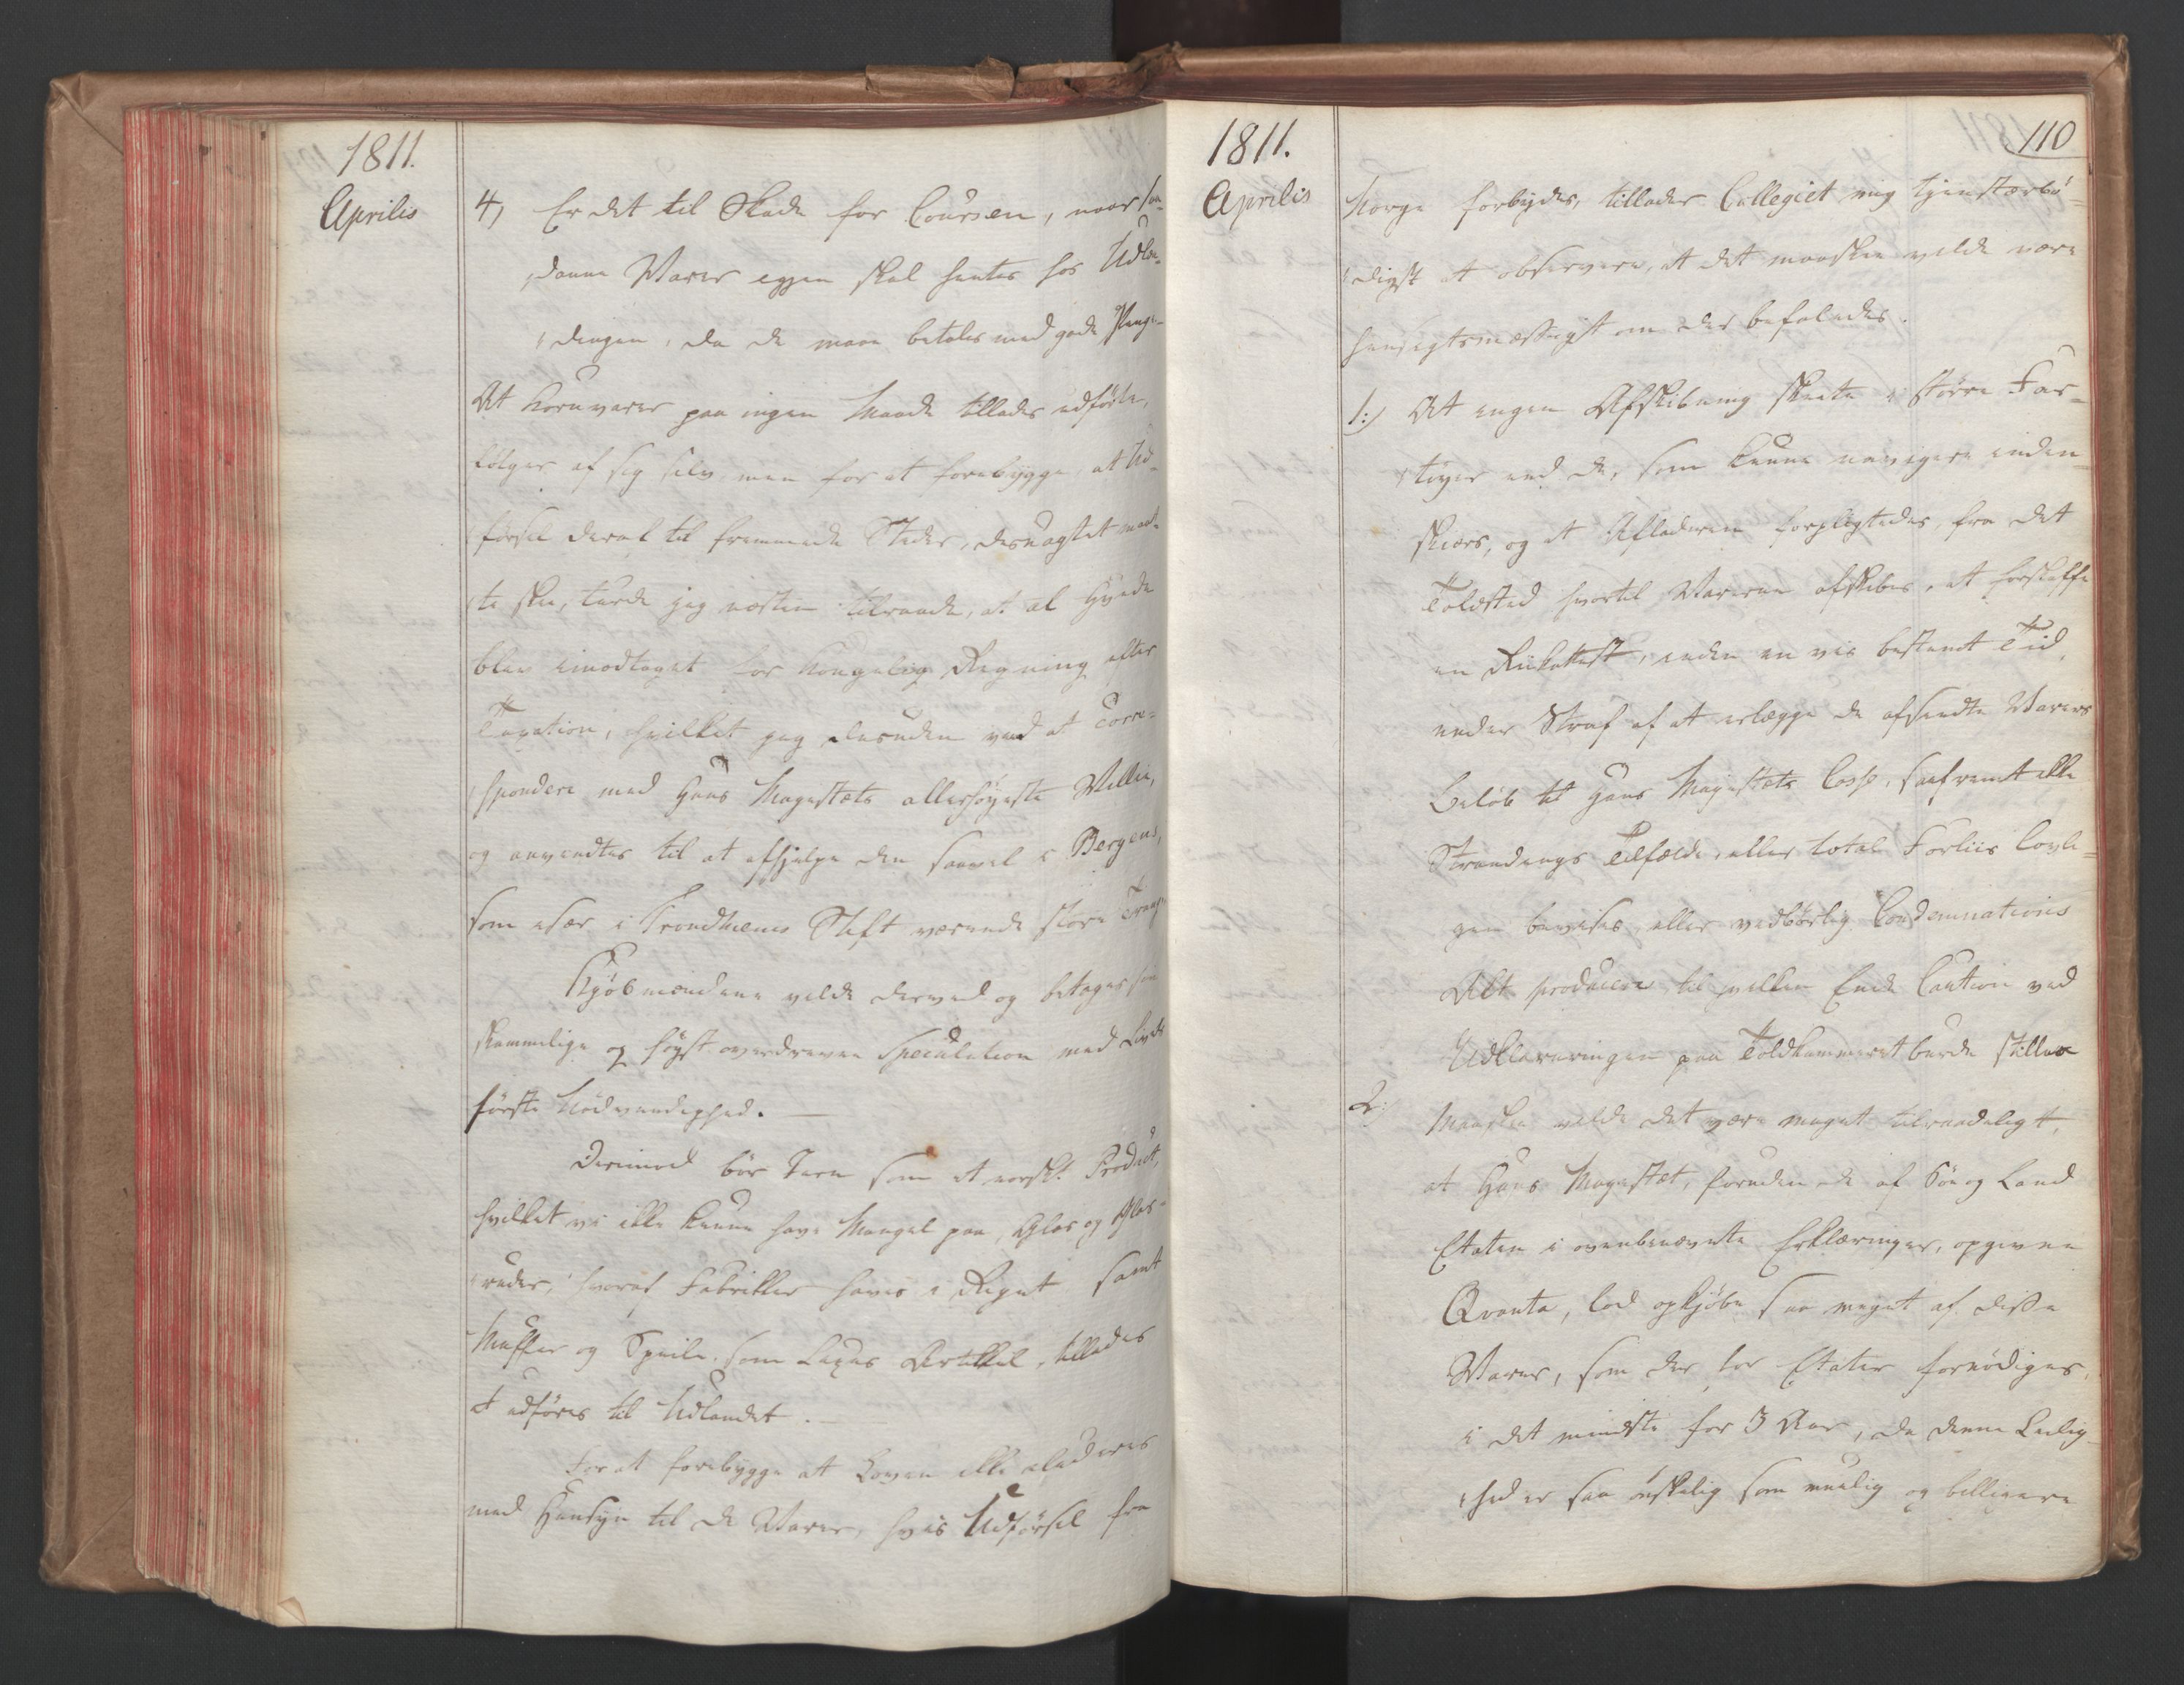 1811.
Aprilis
4, Er det til Skade for Coursen, naar saa-
danne Varer egjen skal hentes hos Udlæn-
dingen, da de maae betales med gode Penge.
At Kornvarer paa ingen Maade tillades udförte,
fölger af sig selv, men for at forebygge, at Ud-
försel deraf til fremmede Steder, desuagtet maat-
te skee, turde jeg næsten tilraade, at al Hvede
blev imodtaget for Kongelig Regning efter
Taxation, hvilket jeg desuden veed at Corre-
spondere med Hans Majestæts allerhöyeste Villie,
og anvendtes til at afhjelpe den saavel i Bergens,
som især i Trondhiems Stift værende store Trang.
Kjöbmændene vilde derved og betages sin
skammelige og höyst overdrevne Speculation med Livets
förste Nödvendighed. —
Derimod bör Jern som et norskt Product,
hvilket vi ikke kunne have Mangel paa, Glas og Glas-
ruder, hvoraf Fabrikker haves i Riget samt
Muffer og Speile, som Luxus Artikkel, tillades
at udföres til Udlandet. —
For at forebygge at Loven ikke eluderes
med Hensyn til de Varer, hvis Udförsel fra
1811.
Aprilis
110
Norge forbydes, tillader Collegiet mig tjenstærbö-
digst at observere, at det maaskee vilde være
hensigtsmæssigst om der befaledes.
1:) At ingen Afskibning skeete i större Far-
töyer end de, som kunne navigere inden-
skiærs, og at Afladeren forpligtedes, fra det
Toldsted hvortil Varerne afskibes, at forskaffe
en Riikattest, inden en vis bestemt Tid,
under Straf af at erlægge de afsendte Varers
Belöb til Hans Majestæts Casse, saafremt ikke
Strandings Tilfælde, eller total Forliis lovli-
gen bevises, eller vedbörlig Condemnations
Act producere, til hvilken Ende Caution ved
Udklareringen paa Toldkammeret burde stilles
2:) Maaskee vilde det være meget tilraadeligt,
at Hans Majestæt, foruden de af Söe og Land
Etaten i ovenbenævnte Erklæringer, opgivne
Qvanta, lod opkjöbe saa meget af disse
Varer, som der for Etater fornödiges,
i det mindste for 3 Aar, da denne Leilig-
hed er saa önskelig som muelig og billigere